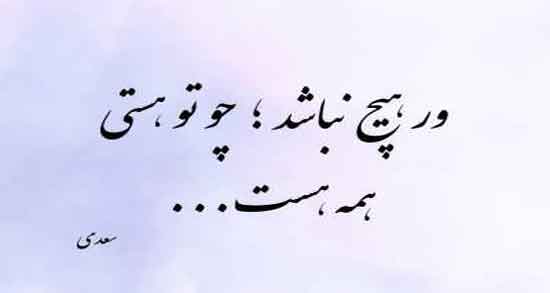 ور هیچ نباشد ؛ چو تو هستی
همه هست...
سعدی